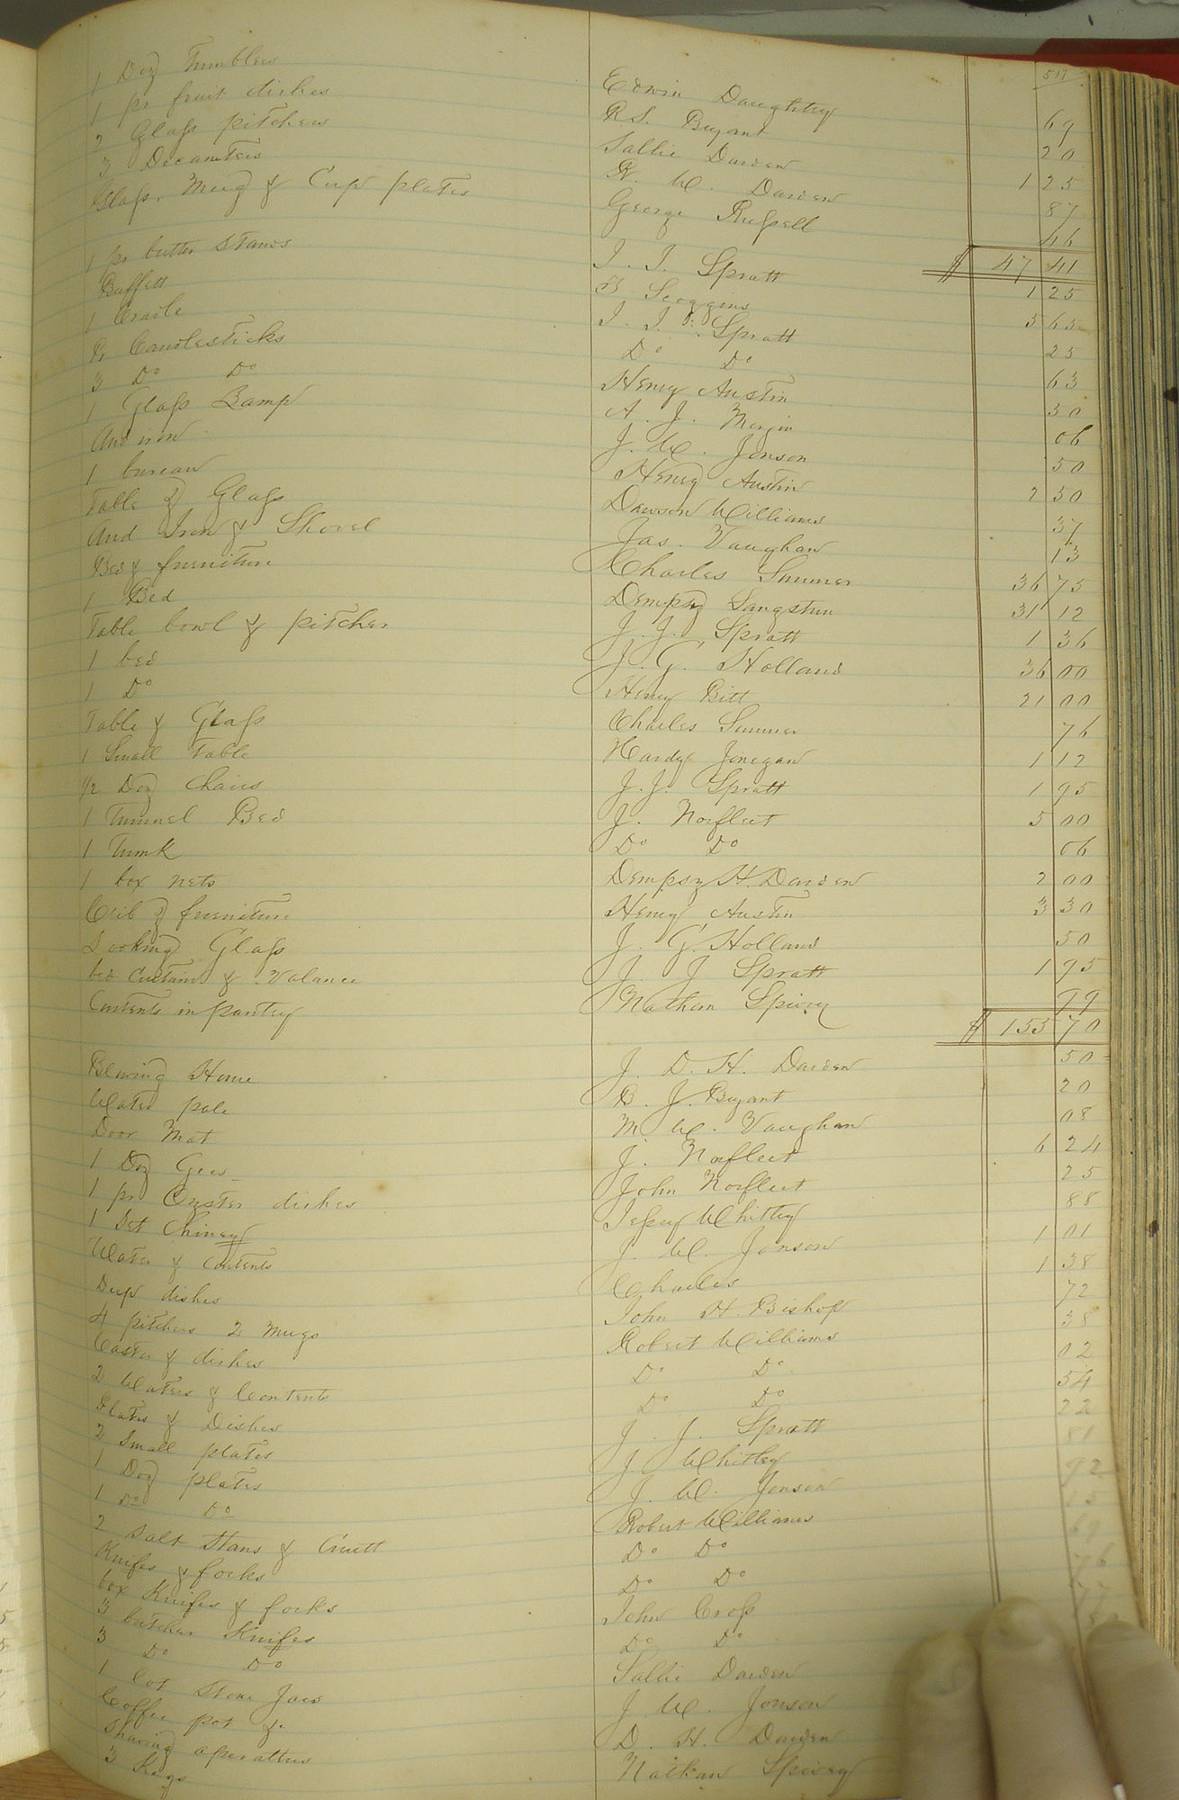 517
1 Doz Tumblers Edwin Daughtry 69
1 pr fruit dishes R. S. Bryant 20
2 Glass pitchers Sallie Darden 1 25
3 Decanters R. W. Darden 87
Glass, Mug & Cup plates George Russell 46
$ 47 41
1 pr butter Stands J. J. Spratt 1 25
Buffett B Scoggens 5 65
1 Cradle J. J. Spratt 25
Pr Candlesticks Do Do 63
3 Do Do Henry Austin 30
1 Glass Lamp A. J. 06
And iron J. W. Jonson 50
1 bureau Henry Austin 2 50
Table & Glass Dawson Williams 37
And Iron & Shovel Jas. Vaughan 13
Bed & furniture Charles Sumner 36 75
1 Bed Dempsy Langstun 31 12
Table bowl & pitcher J. J. Spratt 1 36
1 bed J. G. Holland 36 00
1 Do Henry Britt 21 00
Table & Glass Charles Sumner 76
1 Small Table Hardy Jinegan 1 12
1/2 Doz Chairs J. J. Spratt 1 95
1 Tunnel Bed J. Norfleet 5 00
1 Trunk Do Do 06
1 box nets Dempsy H. Darden 2 00
Crib & furniture Henry Austin 3 30
Looking Glass J. G. Holland 50
bed Curtains & Valance J J Spratt 1 95
Contents in pantry Nathan Spivey 99
$ 155 70
Blowing Horne J. D. H. Darden 50
Water pale B. J. Bryant 20
Door Mat M. W. Vaughan 08
1 Doz Gees J. Norfleet 6 24
1 pr Oyster dishes John Norfleet 25
1 Set Chiney Jessey Whitley 88
Water & Contents J. W. Jonson 1 01
Deep dishes Charles 1 38
4 pitchers 2 Mugs John H. Bishop 72
Caster & dishes Robert Williams 38
2 Waters & Contents Do Do 02
Plates & Dishes Do Do 54
2 Small plates J. J. Spratt 22
1 Doz plates J Whitley 81
1 Do Do J. W. Jonson 92
2 Salt Stans & Cruett Robert Williams
Knifes & forks Do Do
box Knifes & forks Do Do 76
3 butcher Knifes John Cross 77
3 Do Do Do Do
1 lot Stone Jars Sallie Darden
Coffee pot &c J. W. Jonson
Shaving aperattus D. H. Darden
3 Kegs Nathan Spivey